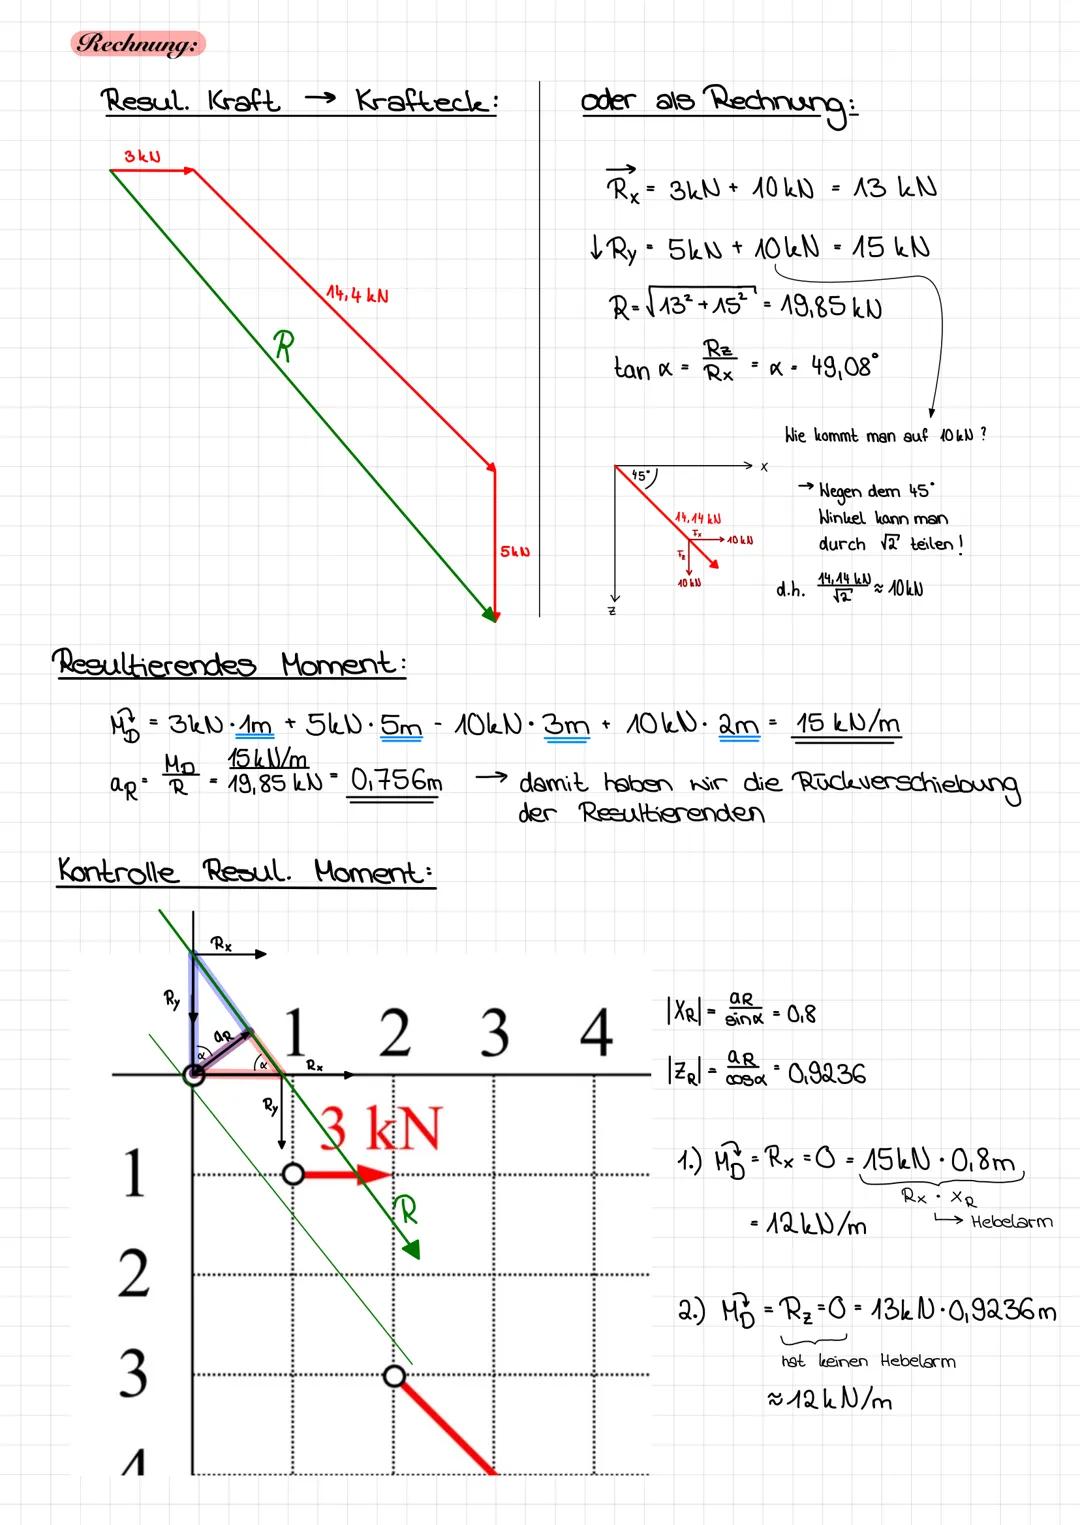 Rechnung:
Resul. Kraft → Krafteck:
3kN
14,4 kN
R
5kN
oder als Rechnung:
Rx = 3kN + 10kN = 13 kN
↓Ry = 5kN + 10kN = 15 kN
R = √13² + 15² = 19,85 kN
tan α = Rz/Rx = α = 49,08°
Wie kommt man auf 10kN?
→ Wegen dem 45°
Winkel kann man
durch √2 teilen!
d.h. 14,14 kN/√2 ≈ 10kN
x
45°
14,14 kN
Tx
10 kN
Tz
10 kN
z
Resultierendes Moment:
MD = 3kN · 1m + 5kN · 5m - 10kN · 3m + 10kN · 2m = 15 kN/m
aR = MD/R = 15kN/m / 19,85 kN = 0,756m → damit haben wir die Rückverschiebung
der Resultierenden
Kontrolle Resul. Moment:
Rx
Ry
aR
α
α
Rx
Ry
1 2 3 4
3 kN
1
R
2
3
4
|XR| = aR/sinα = 0,8
|ZR| = aR/cosα = 0,9236
1.) MD = Rx = 0 = 15kN · 0,8m
Rx · XR
↳ Hebelarm
= 12kN/m
2.) MD = Rz = 0 = 13kN · 0,9236m
hat keinen Hebelarm
≈ 12kN/m